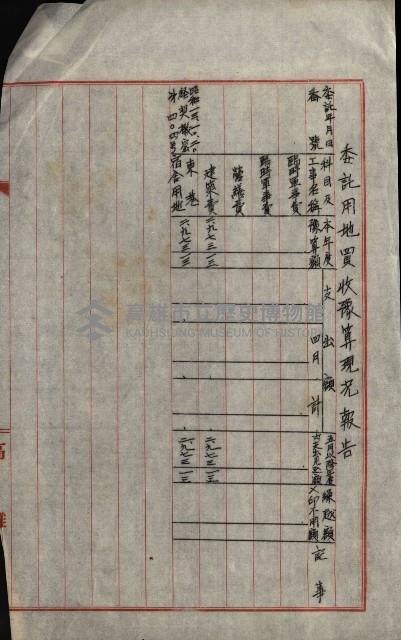 委託用地買收豫算現況報告
委託年月日
番號
科目及
工事名稱
本年度
豫算額
支出額
四月
計
五月以降年度
繰越額
✕印不用額
記事
臨時軍事費
臨時軍事費
營繕費
建築費
二、九七三 一三
二、九七三 一三
昭和一三、一〇、二〇
第四〇四号
東港
宿舍用地
二、九七三 一三
二、九七三 一三
高雄市立歷史博物館
KAOHSIUNG MUSEUM OF HISTORY
高雄